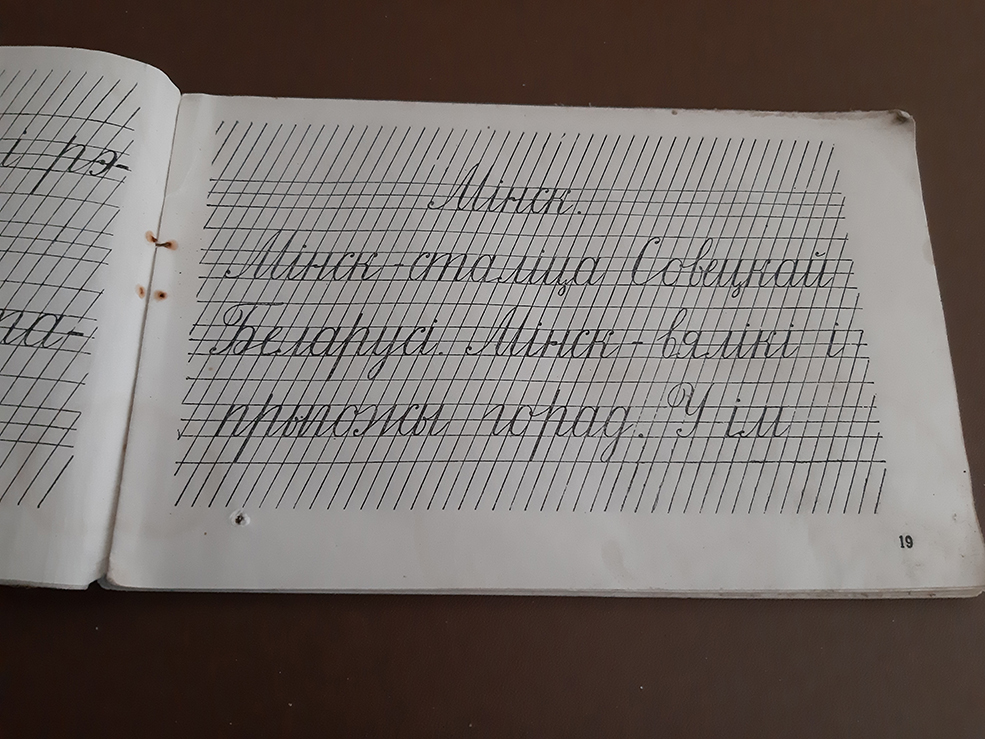 і рэ-
Мінск.
Мінск - сталіца Совецкай
Беларусі. Мінск - вялікі і
прыгожы горад. У ім
19